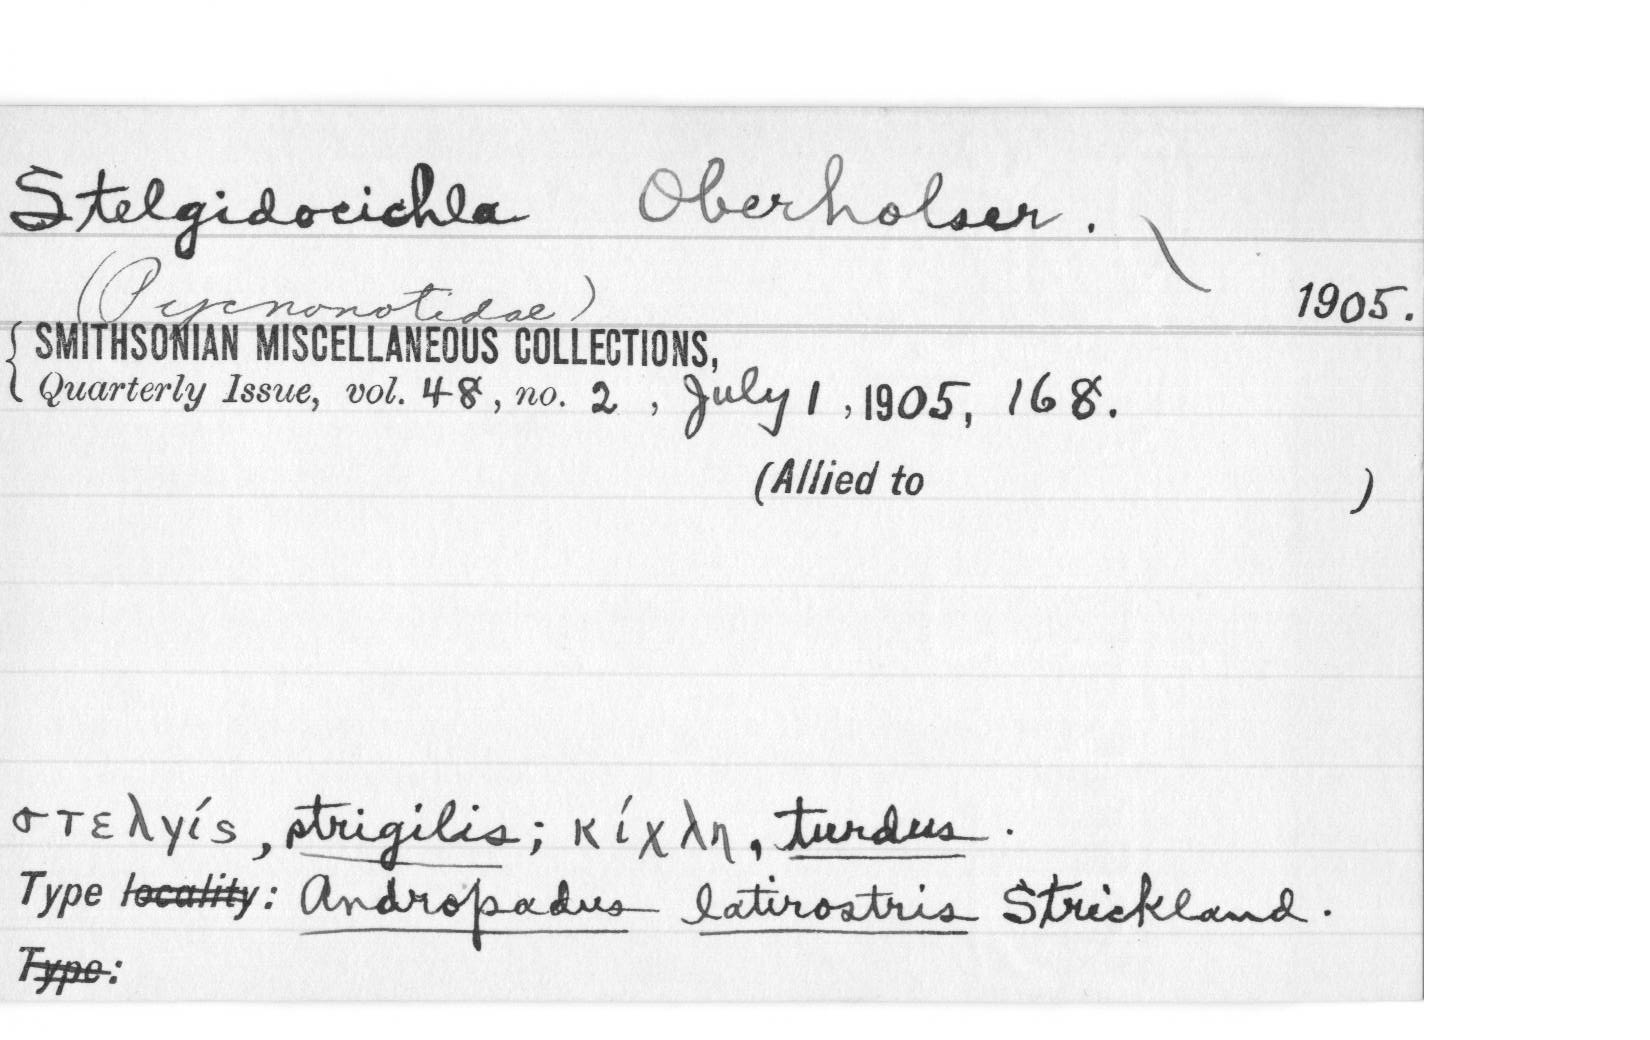 Stelgidocichla Oberholser.
(Pycnonotidae) 1905.
SMITHSONIAN MISCELLANEOUS COLLECTIONS,
Quarterly Issue, vol. 48, no. 2, July 1, 1905, 168.
(Allied to )
στελγίς, strigilis; κίχλη, turdus.
Type locality: Andropadus latirostris Strickland.
Type: